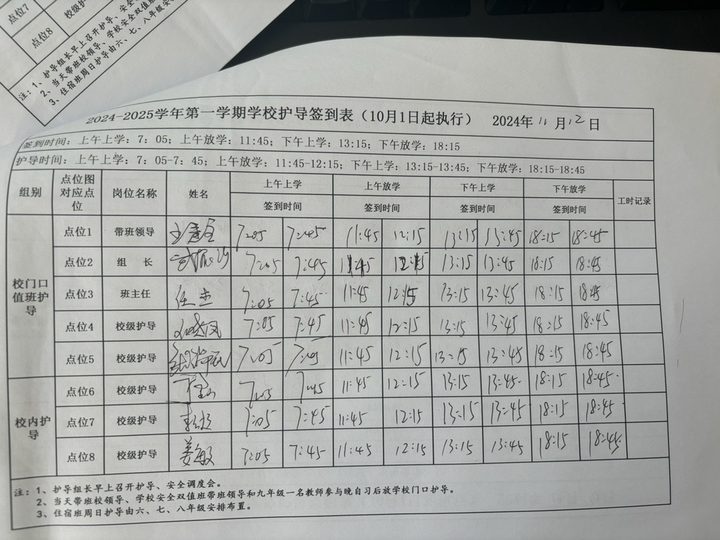 点位7 校级护
点位8 校级护导
注：1、护导组长早上召开护导、安全
2、当天带班校领导、学校安全双值
3、住宿班周日护导由六、七、八年级安
2024-2025学年第一学期学校护导签到表（10月1日起执行） 2024年 11 月 12 日
签到时间：上午上学：7：05；上午放学：11:45；下午上学：13:15；下午放学：18:15
护导时间：上午上学：7:05-7：45；上午放学：11:45-12:15；下午上学：13:15-13:45；下午放学：18:15-18:45
组别 点位图对应点位 岗位名称 姓名 上午上学 上午放学 下午上学 下午放学 工时记录
签到时间 签到时间 签到时间 签到时间
校门口值班护导
点位1 带班领导 7:05 7:45 11:45 12:15 13:15 13:45 18:15 18:45
点位2 组 长 7:05 7:45 11:45 12:15 13:15 13:45 18:15 18:45
点位3 班主任 任杰 7:05 7:45 11:45 12:15 13:15 13:45 18:15 18:45
点位4 校级护导 7:05 7:45 11:45 12:15 13:15 13:45 18:15 18:45
点位5 校级护导 7:05 7:05 11:45 12:15 13:15 13:45 18:15 18:45
校内护导
点位6 校级护导 7:05 7:45 11:45 12:15 13:15 13:45 18:15 18:45
点位7 校级护导 7:05 7:45 11:45 12:15 13:15 13:45 18:15 18:45
点位8 校级护导 姜敏 7:05 7:45 11:45 12:15 13:15 13:45 18:15 18:45
注：1、护导组长早上召开护导、安全调度会。
2、当天带班校领导、学校安全双值班带班领导和九年级一名教师参与晚自习后放学校门口护导。
3、住宿班周日护导由六、七、八年级安排布置。